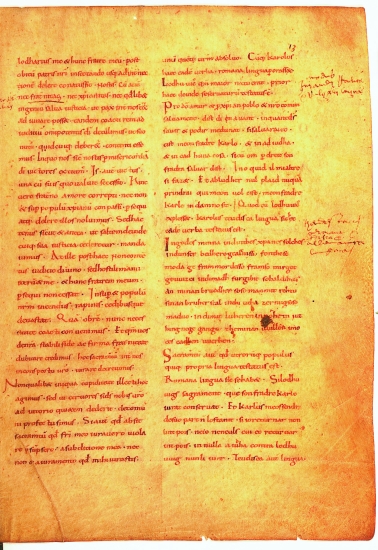 lodharius me & hunc fratrē meū, post
obitū patris nr̄i insectando usq; ad interne
cionē delere conatus sit nostis. Cū aūt
nec frat̄nitas, nec xp̄ianitas, nec qđlib&
ingeniū salva iusticia, ut pax int̄ nos eēt
adiuvare posset. tandem coacti rem ad
iuditiū omnipotentis dī detulimus, ut suo
nutu, quid cuiq; deber&ur, contenti esse
mus. In quo nos sic̄ nostis p misericordiā
dī victores
una cū suis quo valuit secessit. Hinc
vero frat̄no amore correpti, nec non
& sup populū xpianū compassi, psequi
atq; delere illos noluimus. Sed hac
tenus
cuiq; sua iusticia ceder&ur, manda
vimus. At ille post haec non conten
tus iudicio divino, sed hostili manu
& hunc fratrem meum
psequi non cessat. Insup & populū
nrm incendiis, rapinis, cedibusq;
devastat. Quā obrē, nunc neces
sitate coacti convenimus. Et qm̄ vos
de nra stabili fide ac firma frat̄nitate
dubitare credimus, hoc sacramtū int̄ nos
in conspectu vr̄o iurare decrevimus.
Non qualib& iniqua cupiditate illecti hoc
agimus, sed ut certiores si dš nobis vr̄o
adiutorio qui&em dederit, de commu
ni profectu simus. Si aūt qđ absit
sacramtū qđ fratri meo iuravero viola
re psūpsero, a subditione mea, nec
non & a iuramento qđ mihi iurastis,
13
unūquēq; vrm absolvo. Cūq; Karolus
haec eadē verba, romana lingua perorass&.
Lodhuvic̄ qm̄ maior natu erat, prior
haec deinde se servaturū testatus est.
Pro dō amur & p xpian poblo & nr̄o comun
salvament, dist di in avant, inquantds
savir & podir me dunat, si salvaraieo
cist meon fradre karlo, & in ad iudha
& in cad huna cosa, sicū om p dreit son
fradra salvar dift. In o quid il mi altre
si faz&. Et ab ludher nul plaid nūquā
prindrai qui meon vol cist meon fradre
karle in damno sit. Quod cū lodhuvic̄
expless&, karolus teudisca lingua sic ec
eadē verba testatus est.
In godes minna ind in thes xpānes folches
ind unser bedhero gealtnissi. fon thes
moda ge frammordesso framso mir got
geuuizci indi madh furgibit so hald ih tes
an minan bruodher soso man mit rehtu
sinan bruher scal in thi utha zer mig so so
maduo. indi mit luheren in nohein iut
hing nege gango. zhe minan uuillon imo
ce scadhen uuerhen.
Sacramtū aut qđ utrorūq; populus
quiq; propria lingua testatus est.
Romana lingua sic se hab&. Si lodhu
uigs sagrament que son fradre karlo
iurat conservat. Et karlus meos sendra
de suo part n lo stanit. si io returnar non
lint pois, ne io ne neuls cui eo returnar
int pois, in nulla aiudha contra lodhu
uuig nun li iu er. Teudisca aut lingua